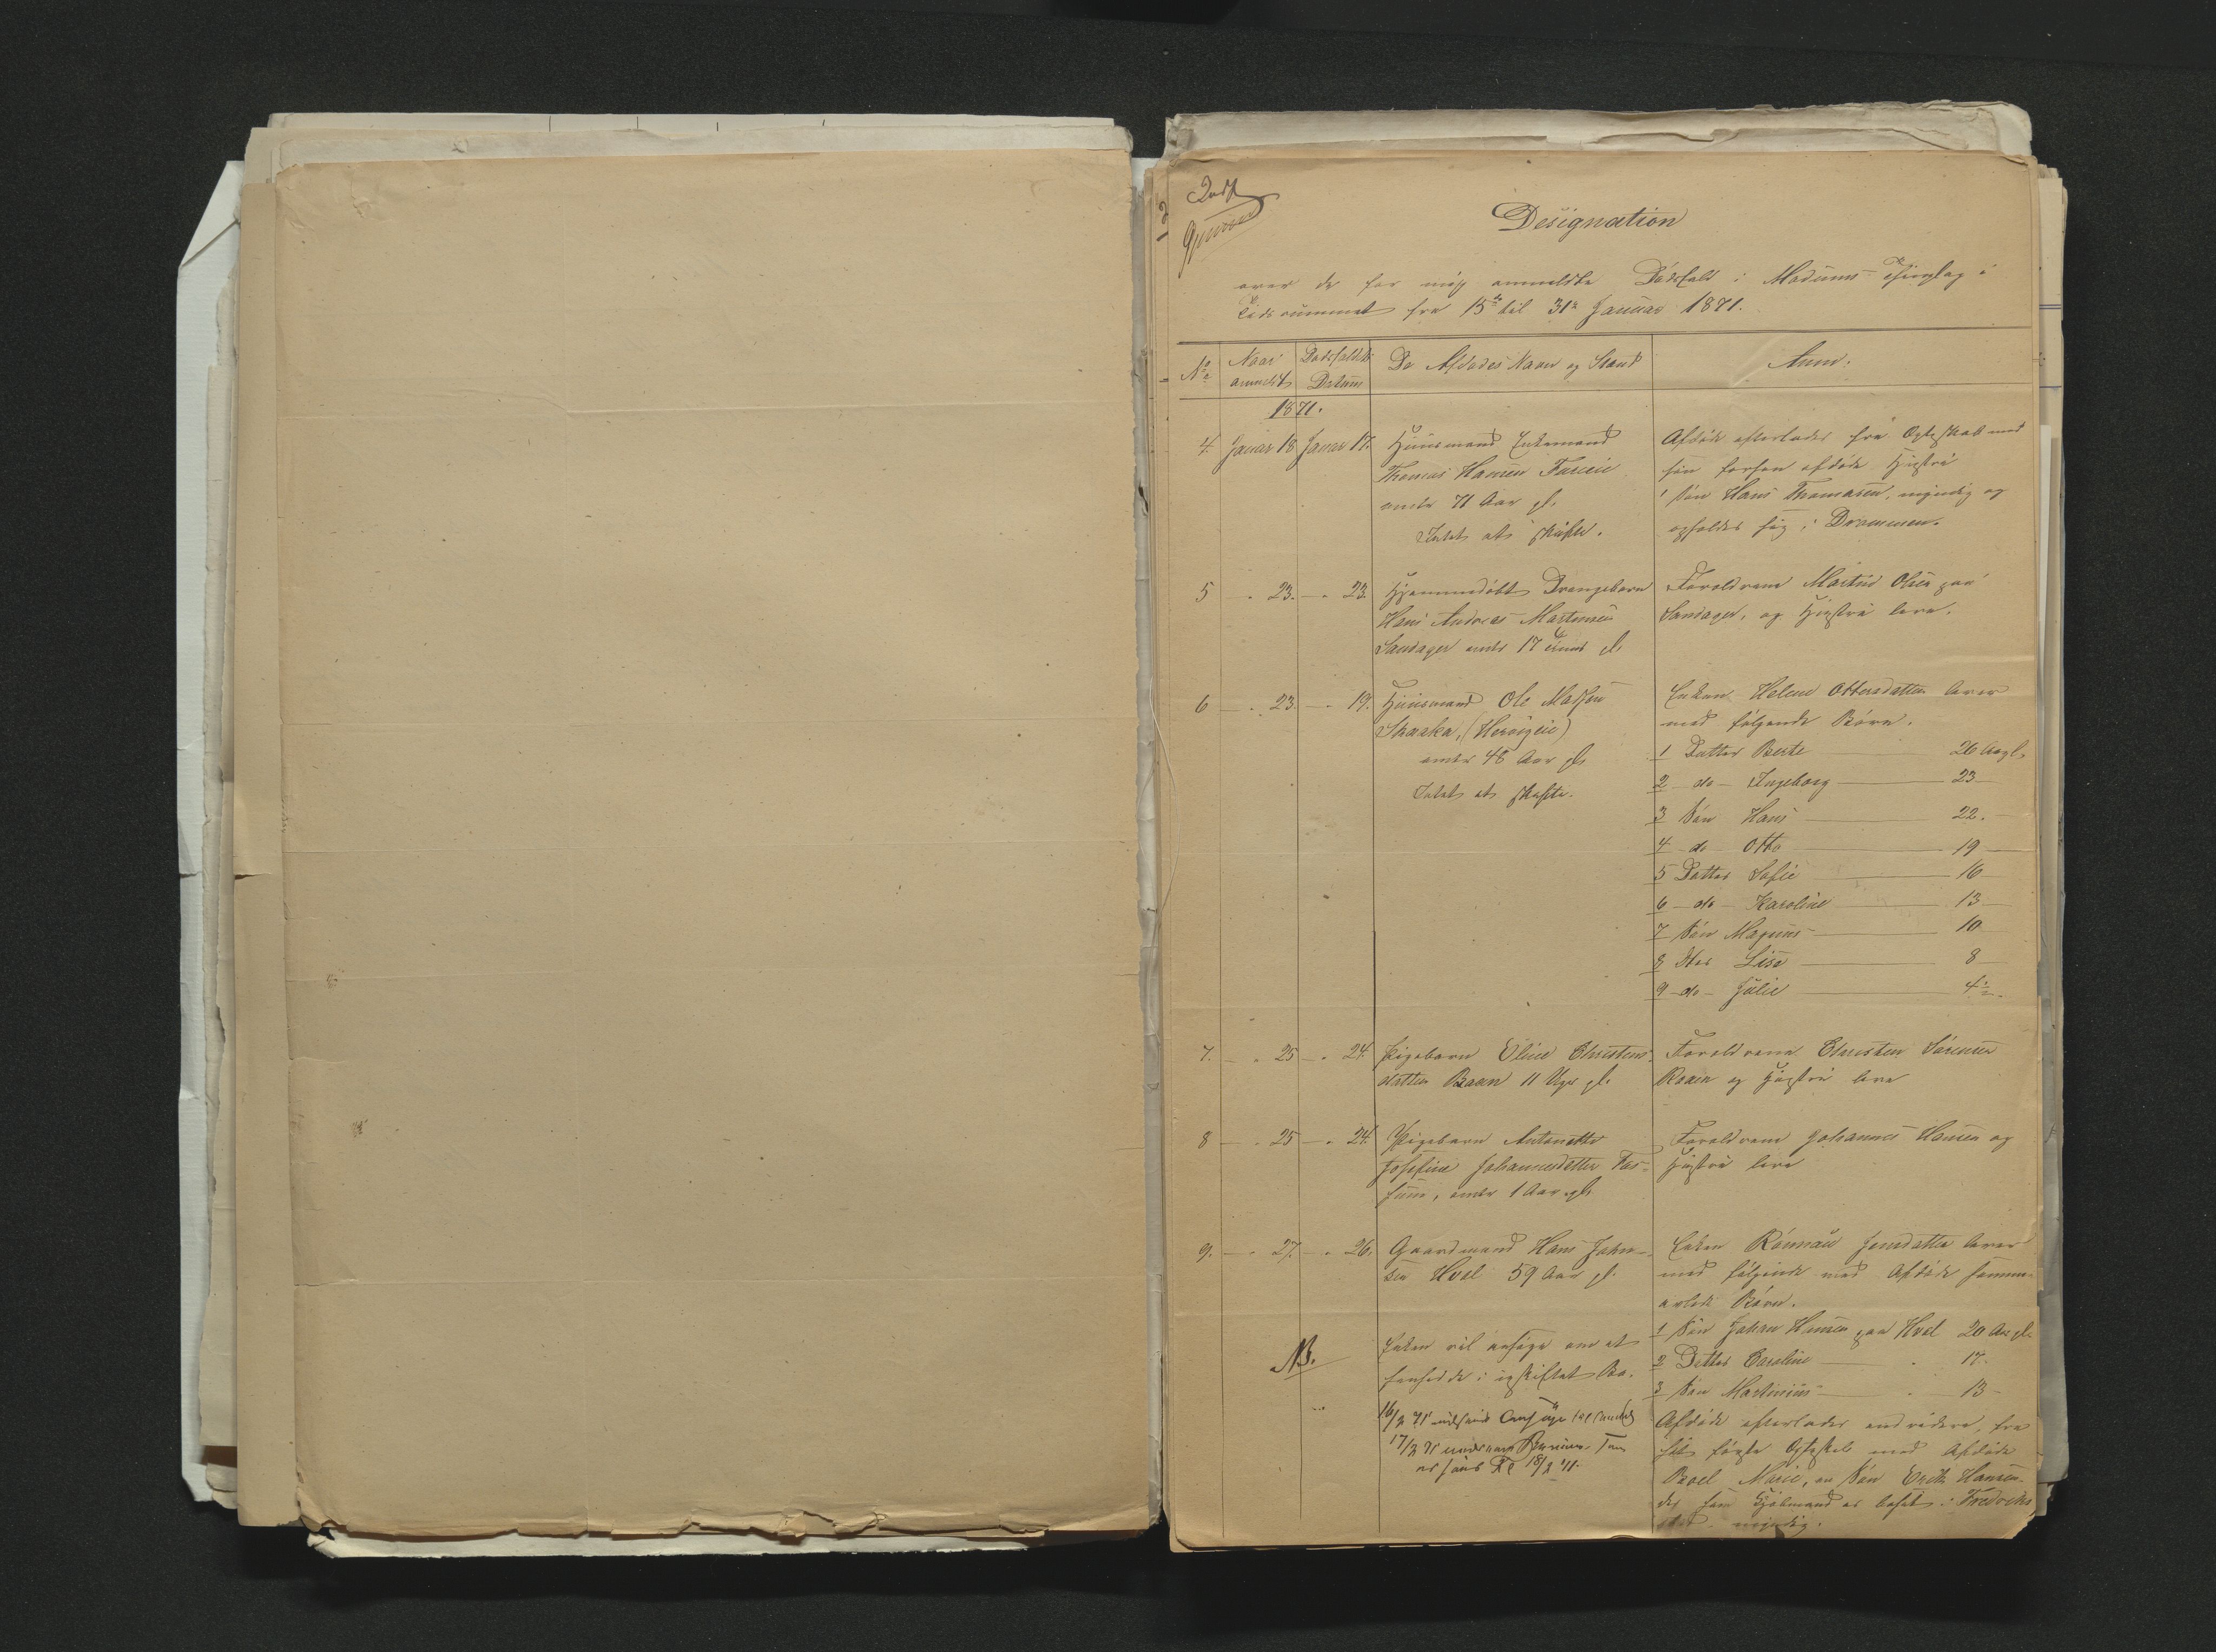 Designation
over de for mig anmeldte Dødsfald i Modums Thinglag i
Tidsrummet fra 15de til 31te Januar 1871.
No
Naar anmeldt
Dødsfaldets Datum
De Afdødes Navn og Stand
Anm.
1871.
4. Januar 18 Januar 17.
Huusmand Enkemand
Thomas Hansen
under 71 Aar gl.
Intet at skifte.
Afdøde efterlader fra Ægteskab med
sin forhen afdøde Hustru
1 Søn Hans Thomasen, myndig og
opholder sig i Drammen.
5 - " 23. - " 23.
Hjemmedøbt Drengebarn
Hans Andreas Martinsen
Sandager under 17 Timer gl.
Forældrene Martin Olsen paa
Sandager, og Hustru leve.
6 - " 23. - " 19.
Huusmand Ole Madsen
Skarska, (Hervigeie)
under 48 Aar gl.
Intet at skifte.
Enken Helene Ottersdatter lever
med følgende Børn.
1 Datter Berte 26 Aar gl.
2 do Ingeborg 23
3 Søn Hans 22.
4 do Otto 19
5 Datter Sofie 16
6 do Karoline 13
7 Søn Magnus 10
8 Dtr Lise 8
9 do Julie 4
7. - " 25 - " 24.
Pigebarn Oline Christens-
datter Braan 11 Uger gl.
Forældrene Christen Sørensen
Braaen og Hustru leve
8 - " 25 - " 24.
Pigebarn Antonette
Josefine Johannesdatter Fos-
sum, under 1 Aar gl.
Forældrene Johannes Hansen og
Hustru leve
9. - " 27. - " 26.
Gaardmand Hans John-
sen Hvel 59 Aar gl.
Enken Rønnau Jensdatter lever
med følgende med Afdøde sammen-
avlede Børn.
1 Søn Johan Hansen paa Hvel 20 Aar gl.
2 Datter Caroline " 17.
3 Søn Martinius " 13
NB.
Enken vil ansøge om at
hensidde i uskiftet Bo.
16/2 71
17/2 71
18/2 71.
Afdøde efterlader endvidere, fra
sit første Ægteskab med Afdøde
Boel Marie, en Søn Erik Hansen
der som Kjøbmand er bosat i Fredriks
stad. myndig.